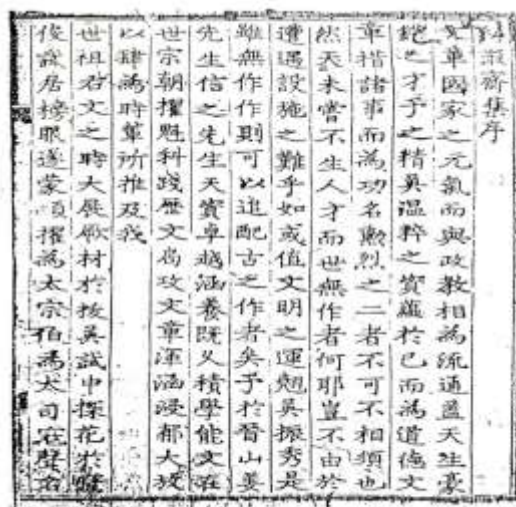 私淑齋集序
文章國家之元氣而與政教相為流通蓋天生豪
絶之才予之精英温粹之質蘊於己而為道德文
章措諸事而為功名勲烈之二者不可不相須也
然天未嘗不生人才而世無作者何耶豈不由於
遭遇設施之難乎如或值文明之運魁英振秀是
雖無作作則可以追配古之作者矣予於晉山姜
先生信之先生天資卓越涵養既久積學能文在
世宗朝擢魁科踐歷文尚攻文章渾涵浸郁大放
以肆為時輩所推及我
世祖右文之時大展厥材於拔英試中探花於登
俊試居榜眼遂蒙頃擢為太宗伯為大司寇聲名